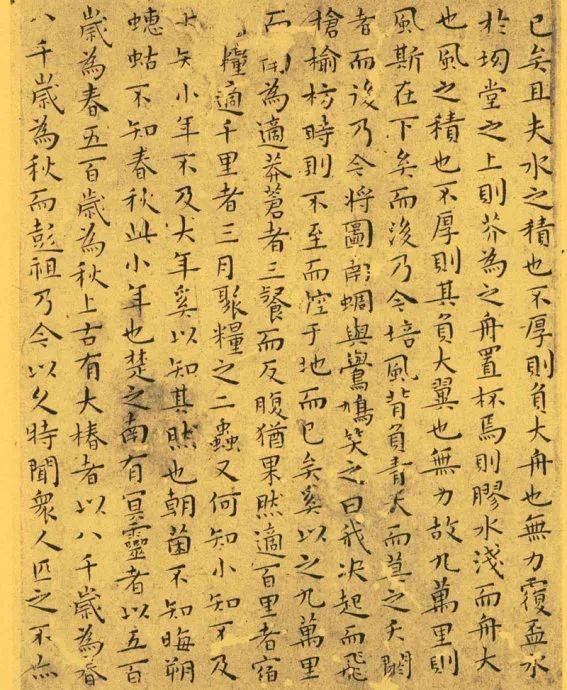 已矣且夫水之積也不厚則負大舟也無力覆盃水
於坳堂之上則芥為之舟置杯焉則膠水淺而舟大
也風之積也不厚則其負大翼也無力故九萬里則
風斯在下矣而後乃今培風背負青天而莫之夭閼
者而後乃今將圖南蜩與鷽鳩笑之曰我決起而飛
槍榆枋時則不至而控于地而已矣奚以之九萬里
而南為適莽蒼者三餐而反腹猶果然適百里者宿
糧適千里者三月聚糧之二蟲又何知小知不及
大知小年不及大年奚以知其然也朝菌不知晦朔
蟪蛄不知春秋此小年也楚之南有冥靈者以五百
歲為春五百歲為秋上古有大椿者以八千歲為春
八千歲為秋而彭祖乃今以久特聞衆人匹之不亦